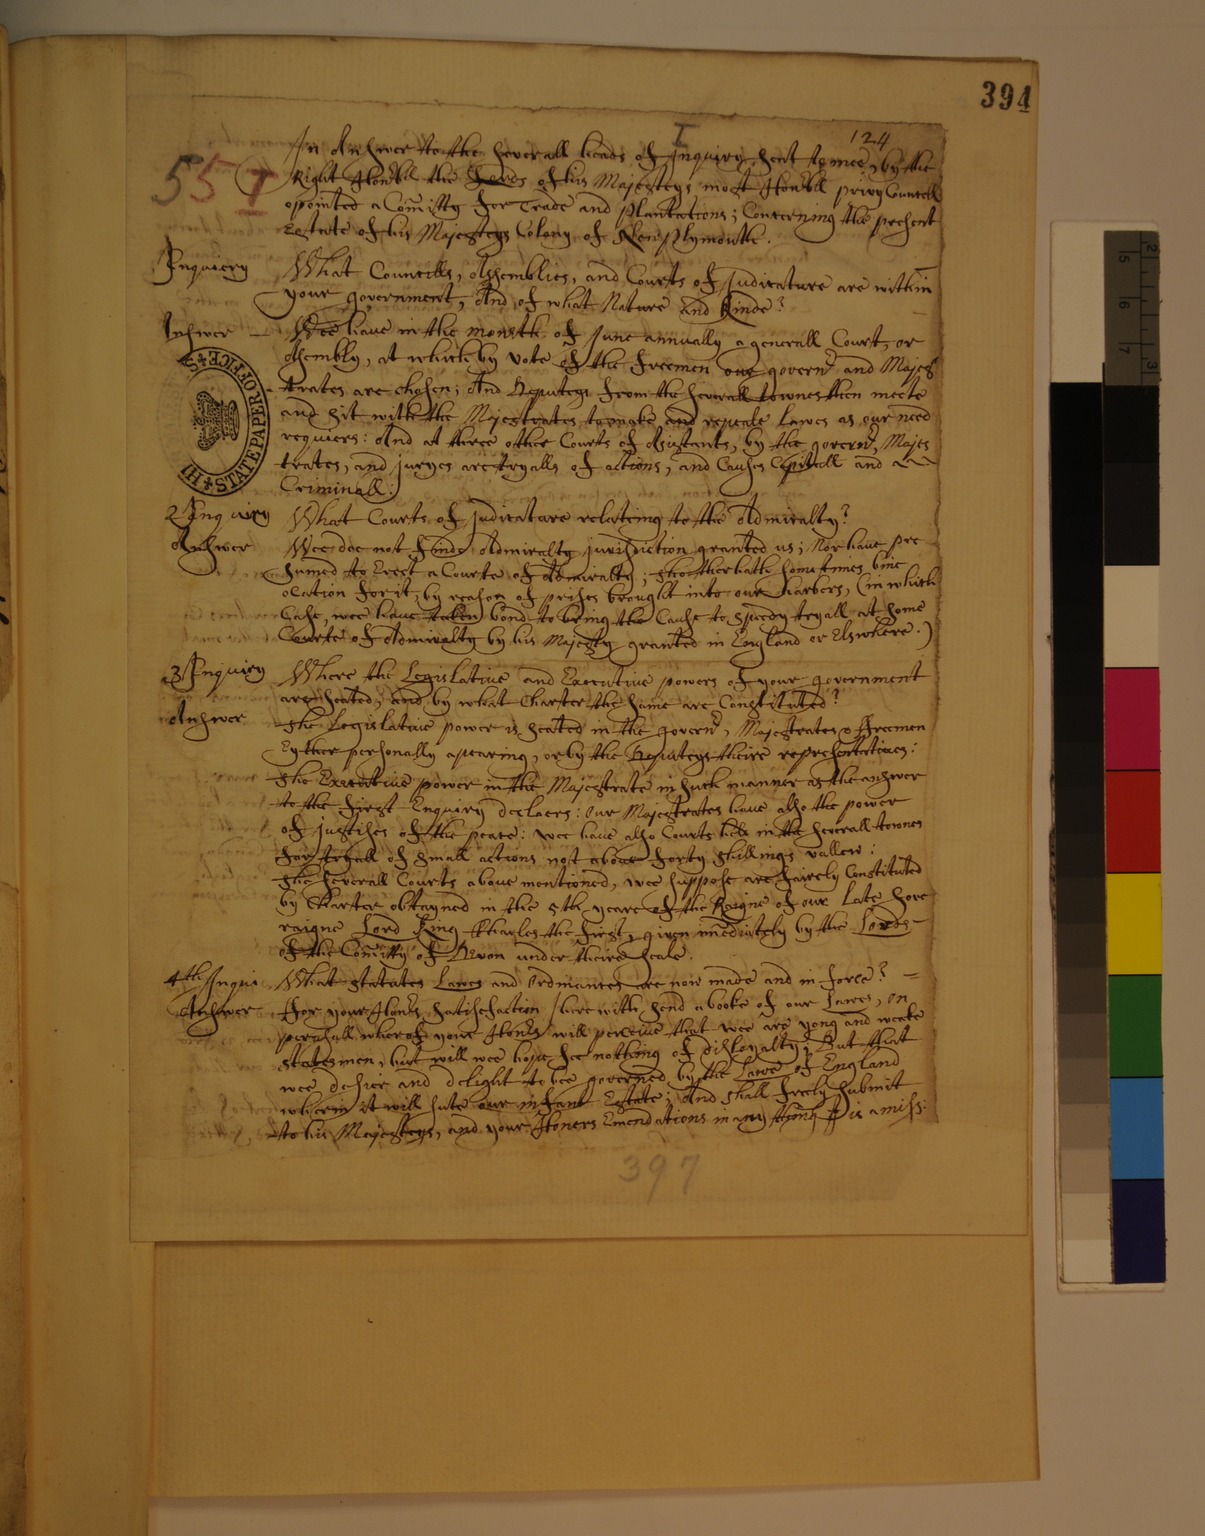 394
I
124
55 I
In Answer to the severall heads of Inquiry sent to mee by the
Right Honbll the Lords of his Majesteys most Honbll privy Councell
opointed a Comitty for Trade and plantations; Concerning the present
Estate of his Majesteys Colony of New Plymouth.
Inquiery What Councills, Assemblies, and Courts of Judicature are within
your government, And of what Nature and Kinde?
Answer — Wee haue in the month of June annually a generall Court, or
Assembly, at which by vote of the freemen our governr and Majes
trates are chosen; And Deputeys from the severall townes then meete
and sit with the Majestrates to make and repeale Lawes as our need
requiers: And at three other Courts of Assistants, by the governr, Majes
trates, and juryes are tryalls of actions, and Causes Capitall and
Criminall:
STATE PAPER OFFICE
2 Inquiery What Courts of judicature relateing to the Admiralty?
Answer Wee doe not finde Admiralty jurisdiction granted us; Nor haue pre
sumed to Erect a Courte of Admiralty; tho ther hath sometimes bine
ocation for it, by reason of prises brought into our harbers, (in which
Case, wee haue taken bond to bring the Cause to speedy tryall at some
Courte of Admiralty by his Majesty granted in England or Elswhere.)
3 Inquiery Where the Legislatiue and Executiue powers of your government
are seated, and by what Charter the same are Constituted?
Answer The Legislatiue power is seated in the governr, Majestrates & ffreemen
Eyther personally apearing, or by the Deputeys theire representetiues:
The Executiue power in the Majestrate in such manner as the answer
to the first Enquiry declaers: our Majestrates haue also the power
of justises of the peace: wee haue also Courts held in the severall townes
for tryall of small actions not aboue forty shillings vallew:
The severall Courts aboue mentioned, wee suppose are fairely Constituted
by Charter obtayned in the 5th yeare of the Raigne of our Late Sove
raigne Lord King Charles the first, given imediately by the Lords
of the Comitty of Devon under theire Seale.
4th Inqui. What statates Lawes and Ordinances are now made and in force?
Answer For your Honrs satisfaction I herewith send a booke of our Lawes, on
perusall wherof your Honrs will perceiue that wee are yong and weeke
statesmen, but will wee hope see nothing of disloyalty; But that
wee desier and delight to bee governed by the Lawes of England
wherin it will sute our infant Estate; And shall freely submit
to his Majesteys, and your Honers Emendations in any thing is amiss:
397